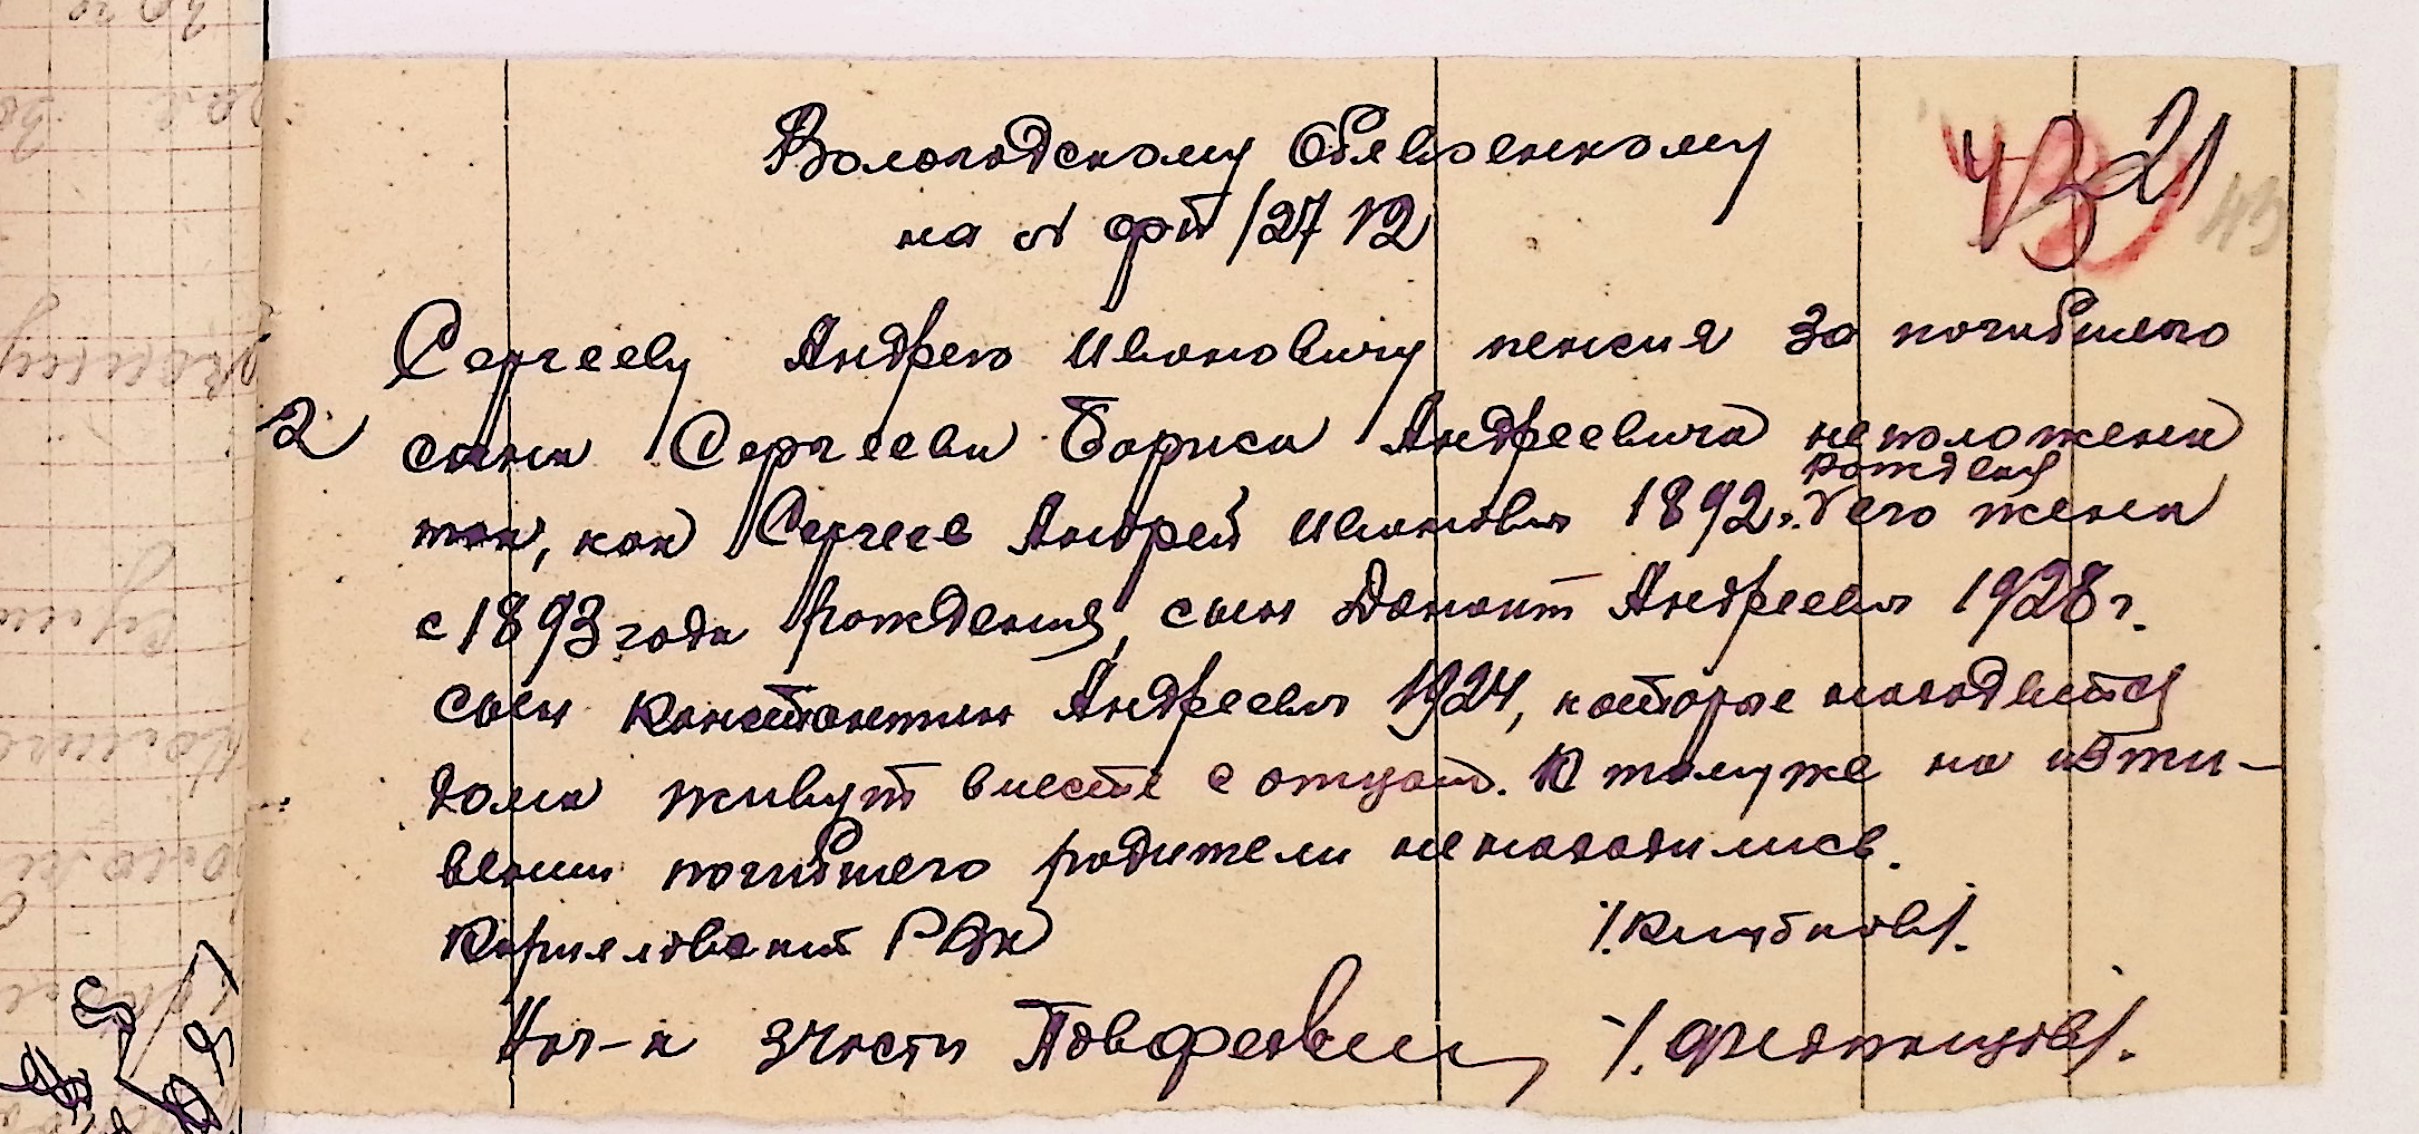 Вологодскому Облвоенкому
на № фп /27 12
43 21
43
Сергееву Андрею Ивановичу пенсия за погибшего
2 сына Сергеева Бориса Андреевича неположена
так, как Сергеев Андрей Иванович 1892г. рождения его жена
с 1893 года рождения, сын Донат Андреевич 1928 г.
сын Константин Андреевич 1924, которые находятся
дома живут вместе с отцом. К томуже на ижди-
вении погибшего родители ненаходились.
Кирилловский РВК
Нач-к 3 части